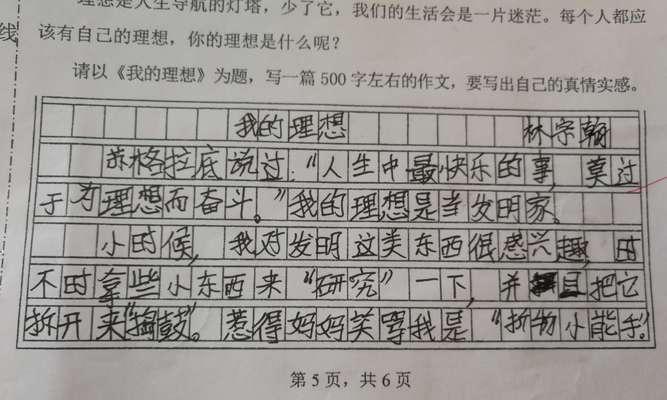 理想是人生导航的灯塔，少了它，我们的生活会是一片迷茫。每个人都应
线
该有自己的理想，你的理想是什么呢？
请以《我的理想》为题，写一篇500字左右的作文，要写出自己的真情实感。
我的理想 林宗翰
苏格拉底说过：“人生中最快乐的事，莫过
于为理想而奋斗。”我的理想是当发明家。
小时候，我对发明这类东西很感兴趣，时
不时拿些小东西来“研究”一下，并且把它
拆开来“捣鼓”。惹得妈妈笑骂我是“拆物小能手”。
第5页，共6页